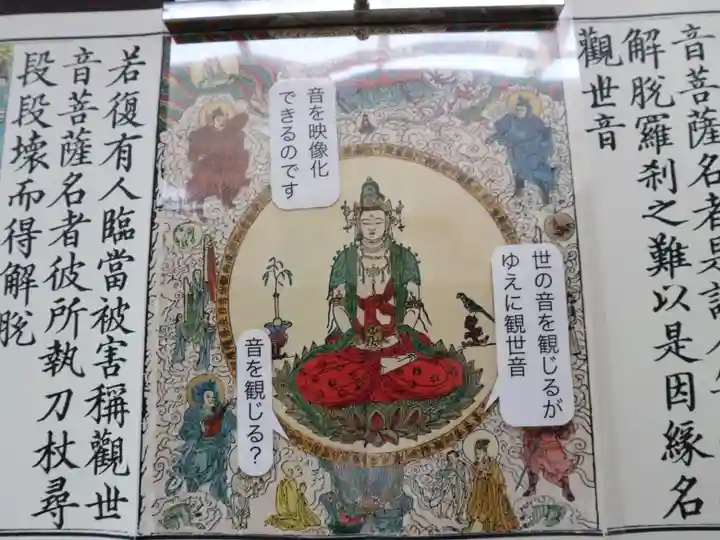 音菩薩名者是諸人等
解脫羅刹之難以是因緣名
觀世音
世の音を観じるが
ゆえに観世音
音を映像化
できるのです
音を観じる？
若復有人臨當被害稱觀世
音菩薩名者彼所執刀杖尋
段段壞而得解脫